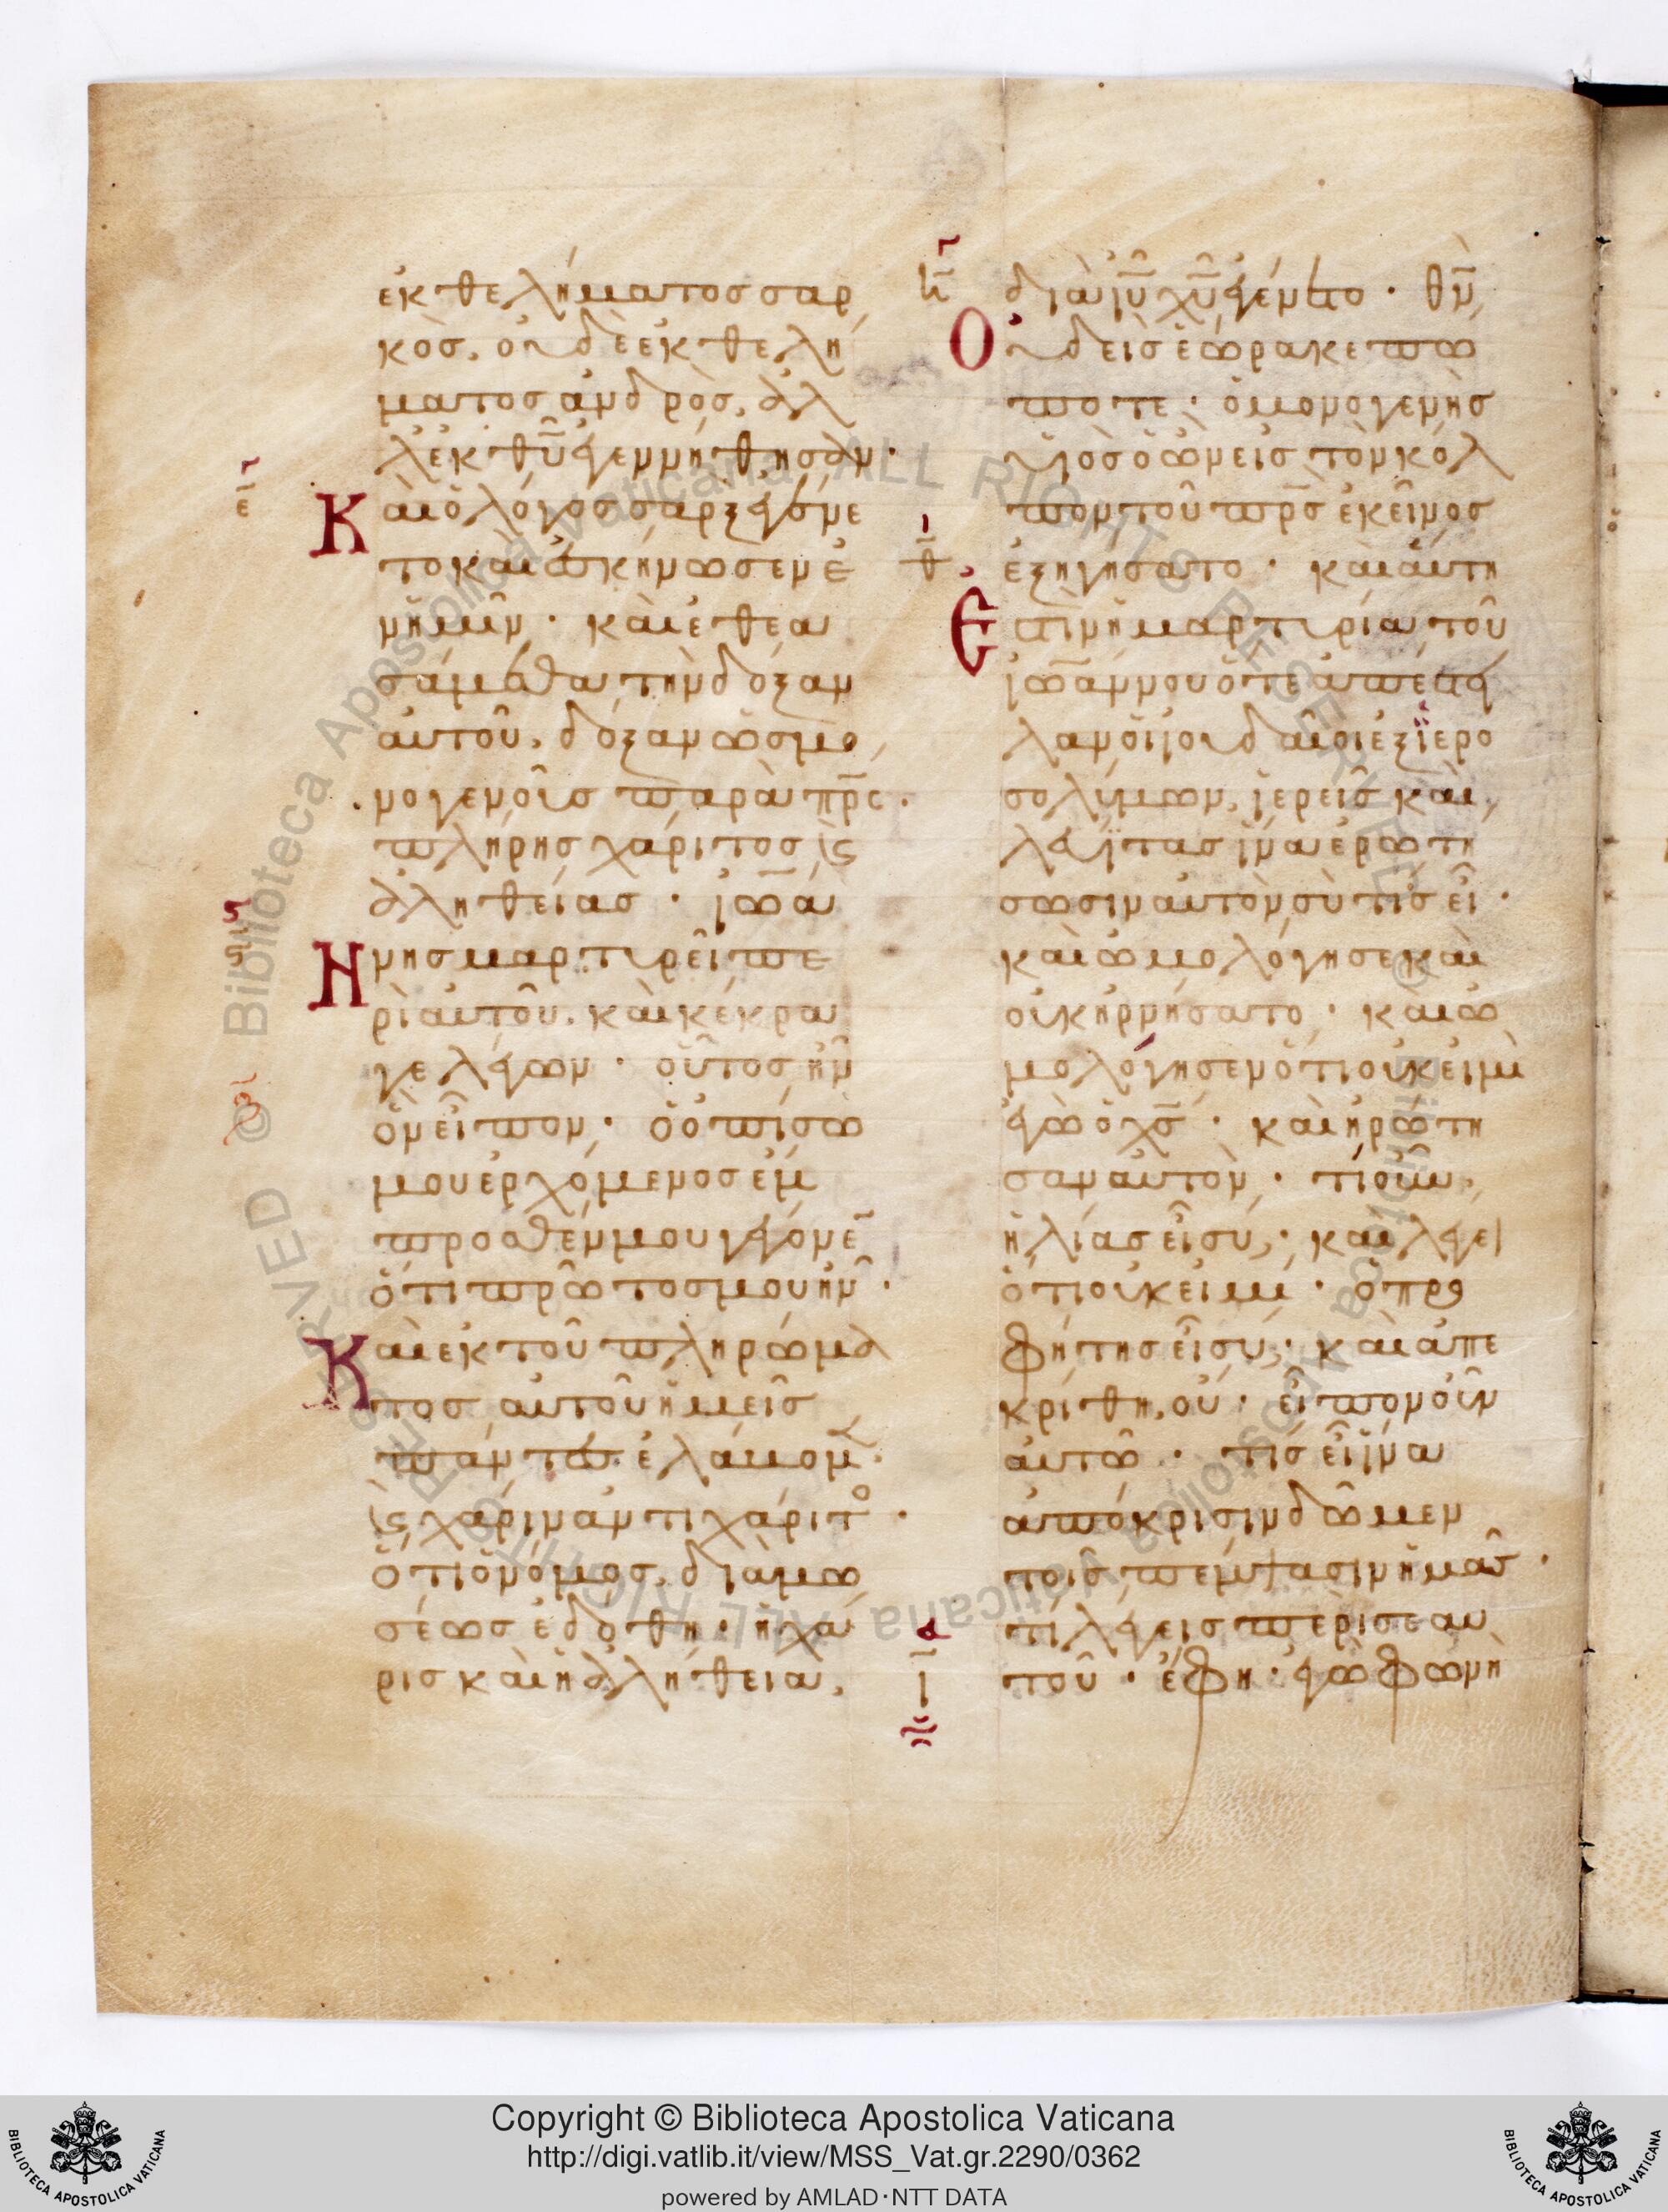 ἐκ θελήματος σαρ
κὸς, οὐδὲ ἐκ θελή
ματος ἀνδρὸς, ἀλ
λ ἐκ θ̅υ̅ ἐγεννήθησαν·
Καὶ ὁ λόγος σὰρξ ἐγένε
το καὶ ἐσκήνωσεν ἐ
ν ἡμῖν · καὶ ἐθεα
σάμεθα τὴν δόξαν
αὐτοῦ, δόξαν ὡς μο
νογενοῦς παρὰ π̅ρ̅ς ·
πλήρης χάριτος ϗ
ἀληθείας · ἰωά
Ννης μαρτυρεῖ πε
ρὶ αὐτοῦ, καὶ κέκρα
γε λέγων · οὗτος ἦν
ὃν εἶπον · ὁ ὀπίσω
μου ἐρχόμενος ἔμ
προσθέν μου γέγονε̅
ὅτι πρῶτός μου ἦν ·
Καὶ ἐκ τοῦ πληρώμα
τος αὐτοῦ ἡμεῖς
πάντες ἐλάβομ ·
ϗ χάριν ἀντὶ χάριτο ·
ὅτι ὁ νόμος, διὰ μω
σέως ἐδόθη · ἡ χά
ρις καὶ ἡ ἀλήθεια,
διὰ ι̅υ̅ χ̅υ̅ ἐγένετο · θ̅ν̅
Οὐδεὶς ἑώρακε πώ
ποτε · ὁ μονογενὴς
υἱὸς ὁ ὢν εἰς τὸν κόλ
πον τοῦ π̅ρ̅ς ἐκεῖνος
ἐξηγήσατο · καὶ αὕτη
Ἐστὶν ἡ μαρτυρία τοῦ
ἰωάννου ὅτε ἀπέστει
λαν οἱ ἰουδαῖοι ἐξ ἱερο
σολύμων, ἱερεῖς καὶ
λευίτας ἵνα ἐρωτή
σωσιν αὐτὸν σὺ τίς εἶ ·
καὶ ὡμολόγησε καὶ
οὐκ ἠρνήσατο · καὶ ὡ
μολόγησεν ὅτι οὐκ εἰμὶ
ἐγὼ ὁ χ̅ς̅ · καὶ ἠρώτη
σαν αὐτὸν · τί οὖν,
ἠλίας εἶ σύ; · καὶ λέγει
ὅτι οὐκ εἰμί · ὁ προ
φήτης εἶ σύ; · καὶ ἀπε
κρίθη, οὔ · εἶπον οὖν
αὐτῶ · τίς εἶ ἵνα
ἀπόκρισιν δῶμεν
τοῖς πέμψασιν ἡμᾶς ·
τί λέγεις περὶ σεαυ
τοῦ · ἔφη · ἐγὼ φωνὴ
Copyright © Biblioteca Apostolica Vaticana
http://digi.vatlib.it/view/MSS_Vat.gr.2290/0362
powered by AMLAD·NTT DATA